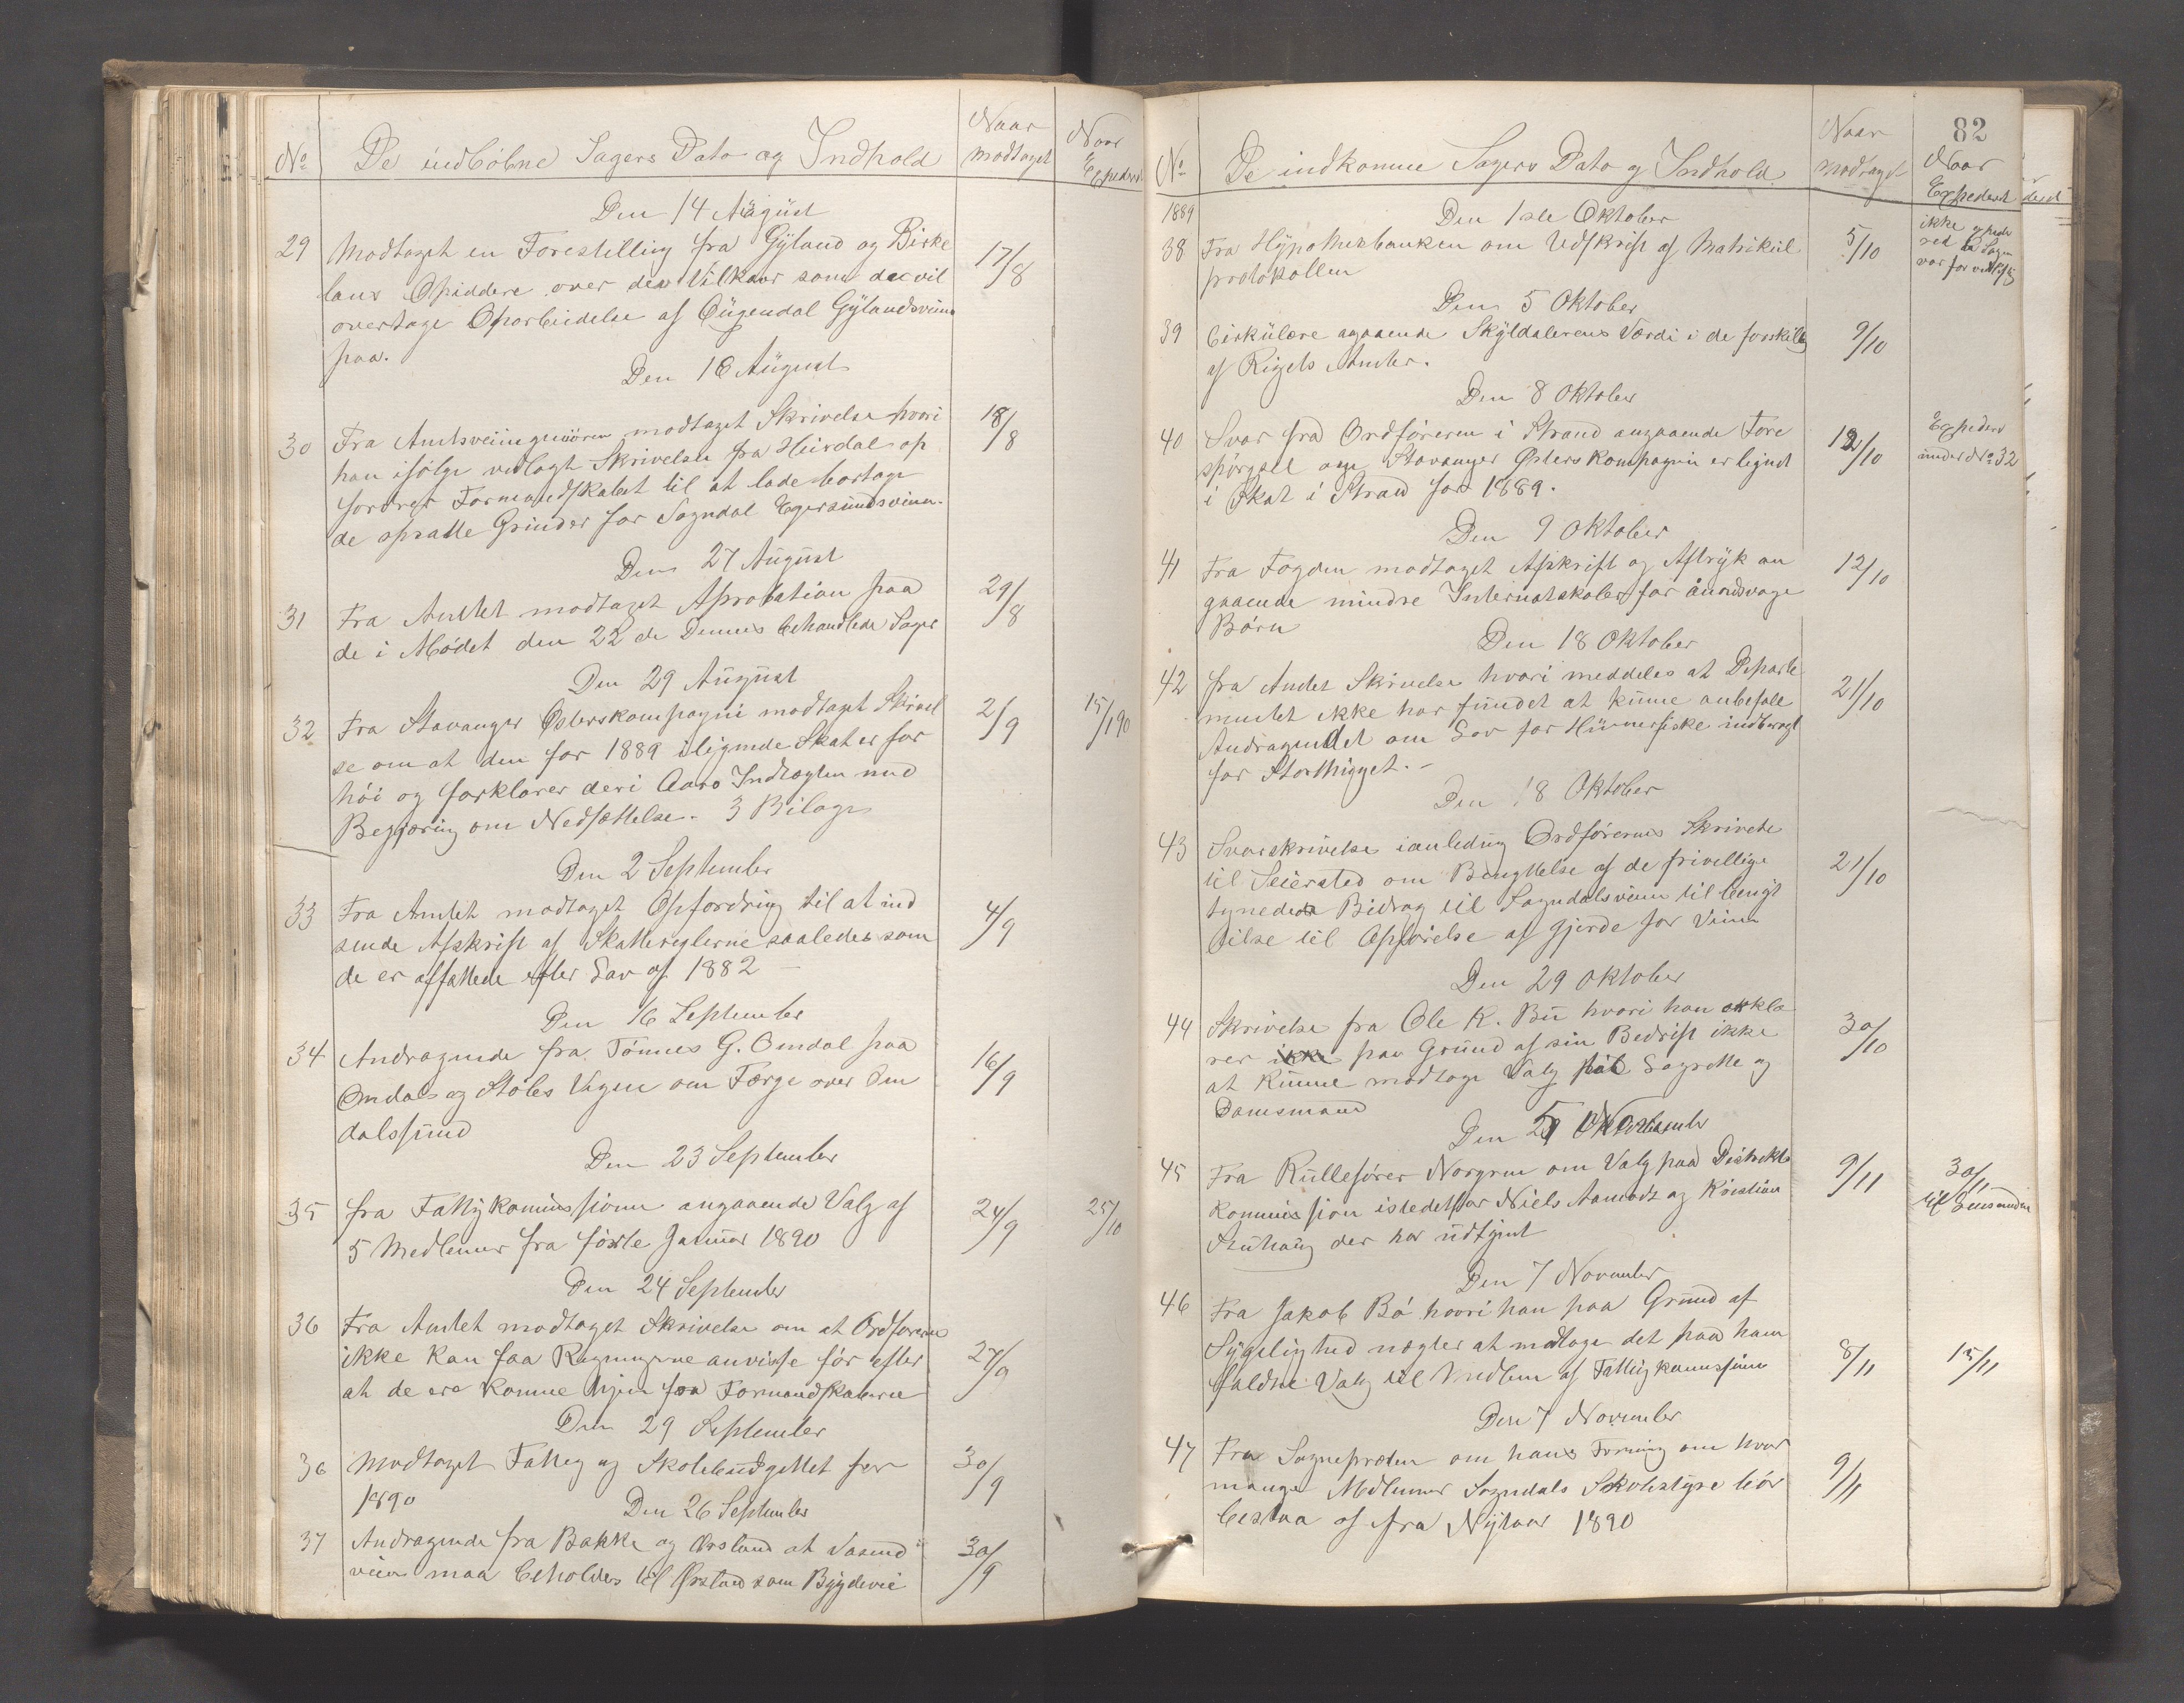 No De indløbne Sagers Dato og Indhold Naar modtaget Naar Expedert
Den 14 August
29 Modtaget en Forestilling fra Gyland og Birke
lans Opsiddere over de Vilkaar som de vil
overtage Oparbeidelse af Gylandsveien
paa. 17/8
Den 16 August
30 Fra Amtsveiingeniøren modtaget Skrivelse hvori
han ifølge vedlagt Skrivelse fra Heirdal op
fordrer Formandskabet til at lade bortage
de opsatte Grinder for Sogndal Egersundsveien. 18/8
Den 27 August
31 Fra Amtet modtaget Aprobation paa
de i Mødet den 22 de Dennes behandlede Sager 29/8
Den 29 August
32 Fra Stavanger Østerskompagni modtaget Skrivel
se om at den for 1889 ilignede Skat er for
høi og forklarer deri Aars Indtægten med
Begjæring om Nedsættelse. 3 Bilage 2/9 15/1 90
Den 2 September
33 Fra Amtet modtaget Opfordring til at ind
sende Afskrift af Skattereglerne saaledes som
de er affattede efter Lav af 1882 – 4/9
Den 16 September
34 Andragende fra Tønnes G. Omdal paa
Omdals og Støles Vegne om Færge over Om
dalssund 16/9
Den 23 September
35 fra Fattigkommissionen angaaende Valg af
5 Medlemer fra første Januar 1890 24/9 25/10
Den 24 September
36 Fra Amtet modtaget Skrivelse om at Ordføreren
ikke kan faa Regningerne anviste før efter
at de ere komne hjem fra Formandskaberne 27/9
Den 29 September
36 Modtaget Fattig og Skolebudgettet for
1890 30/9
Den 26 September
37 Andragende fra Bakke og Ørsland at
veien maa beholdes til Ørsland som Bygdevei 30/9
82
No De indkomne Sagers Dato og Indhold Naar modtaget Naar Expedert
1889 Den 1ste Oktober
38 Fra Hypothekbanken om Udskrift af Matrikul
protokollen 5/10 ikke
Den 5 Oktober
39 Cirkulære agaaende Skyldalerens Værdi i de forskillig
af Rigets Amter. 9/10
Den 8 Oktober
40 Svar fra Ordføreren i Strand angaaende Fore
spørgsel om Stavanger Østers Kompagnie er lignet
i Skat i Strand for 1889. 12/10 Expedert under No 32
Den 9 Oktober
41 Fra Fogden modtaget Afskrift og Aftryk an
gaaende mindre Internatskoler for åandsvage
Børn 12/10
Den 18 Oktober
42 fra Amtet Skrivelse hvori meddeles at Departe
mentet ikke har fundet at kunne anbefale
Andragendet om Lov for Humerfiske indbragt
for Storthinget. – 21/10
Den 18 Oktober
43 Svarskrivelse ianledng Ordførerens Skrivelse
til Seiersted om Benyttelse af de frivellige
Bidrag til Sogndalsveien til benyt
telse til Opførelse af gjerde for Veien 21/10
Den 29 Oktober
44 Skrivelse fra Ole K. Bu hvori han erkla
rer paa Grund af sin Bedrift ikke
at kunne modtage Valg til Lagrette og
Domsmand 30/10
Den 5 November
45 Fra Rullefører Norgren om Valg paa Distrikts
kommission istedetfor Niels Aamodt og Kristian
Stuhaug der har udtjent 9/11 30/11 til
Den 7 November
46 Fra Jakob Bø hvori han paa Grund af
Sygelighed nægter at motage det paa ham
faldne Valg til Medlem af Fattigkomissionen 8/11 15/11
Den 7 November
47 Fra Sognepræsten om hans Forming om hvor
mange Medlemer Sogndals Skolestyre bør
bestaa af fra Nytaar 1890 9/11